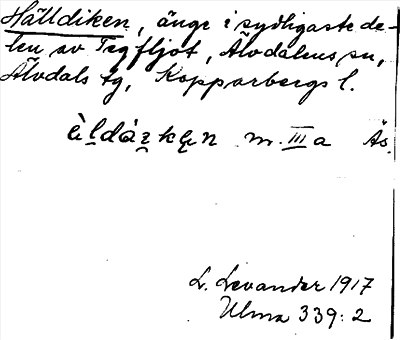 Hälldiken, änge i sydligaste de-
len av Tegfljot, Älvdalens sn,
Älvdals tg, Kopparbergs l.
m. III a Äs.
L. Levander 1917
Ulma 339:2